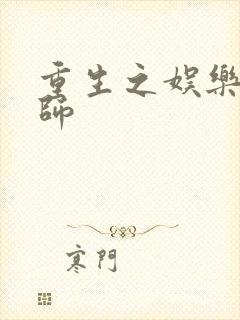 重生之娛樂
師
寒門